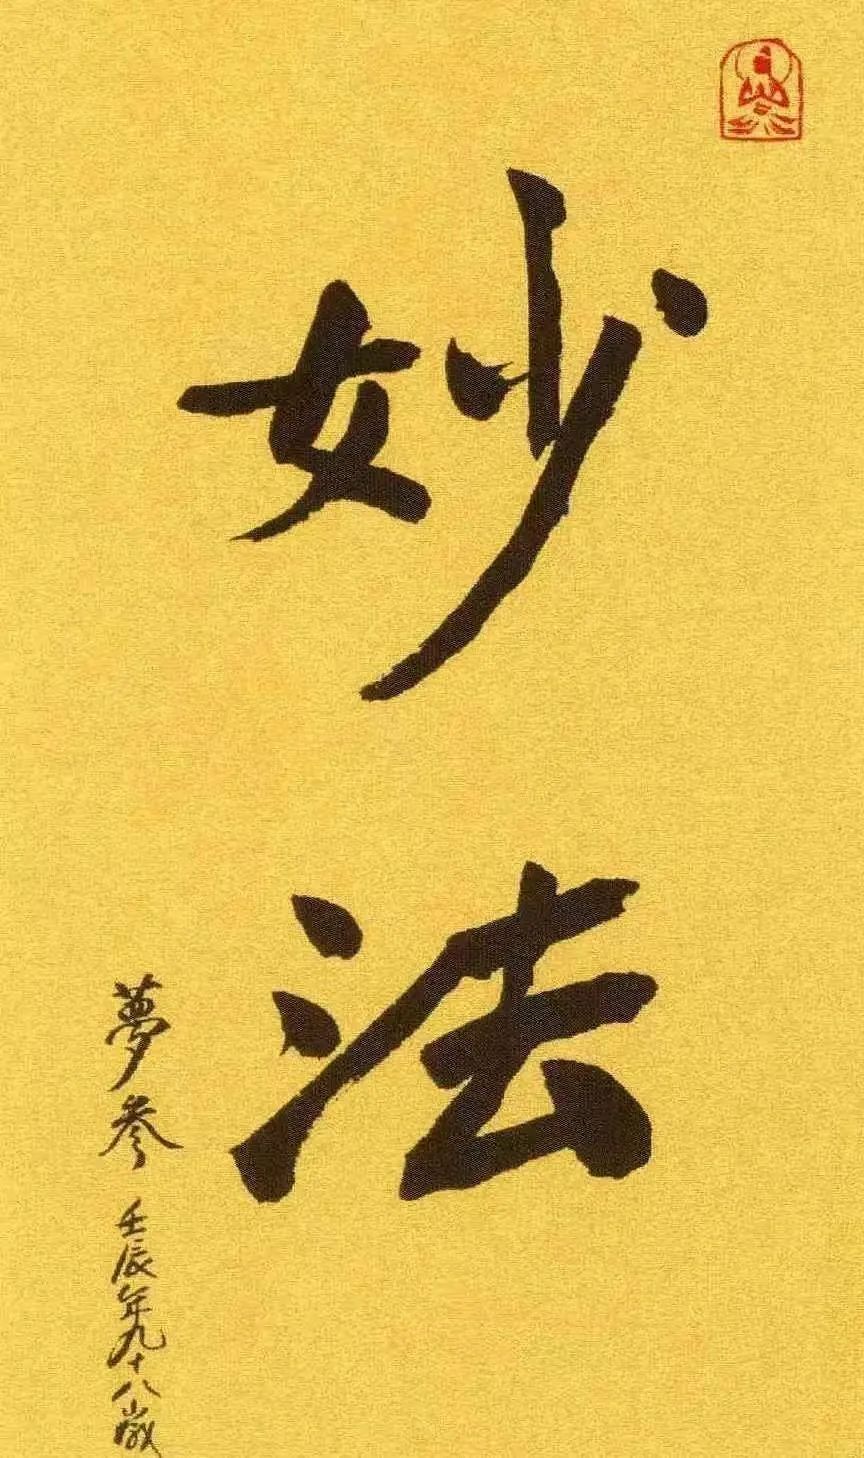 妙法
夢参 壬辰年九十八歲